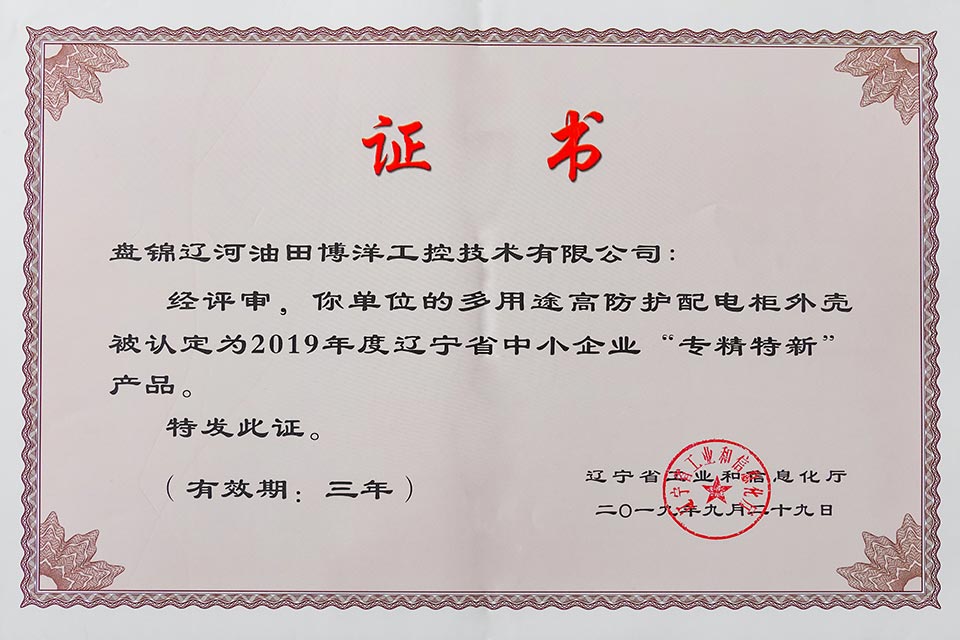 证 书
盘锦辽河油田博洋工控技术有限公司：
经评审，你单位的多用途高防护配电柜外壳
被认定为2019年度辽宁省中小企业“专精特新”
产品。
特发此证。
（有效期：三年）
辽宁省工业和信息化厅
二〇一九年九月二十九日
辽宁省工业和信息化厅